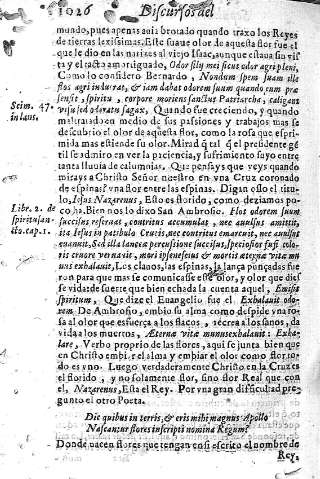 1026 Discursos del
mundo, pues apenas auia brotado quando traxo los Reyes
de tierras lexissimas. Este suaue olor de aquesta flor fue el
que le dio en las narizes al viejo Isaac, aunque estaua su vis
ta y el tacto amortiguado, Odor filij mei sicut odor agri pleni,
Como lo considero Bernardo, Nondum spem suam ille
flos agri indu rat, & iam dabat odorem suum quando eum præ
sensit, spiritu, corpore moriens sanctus Patriarcha, caligans
visu sed odoratu sagax, Quando fue creciendo, y quando
maltratado en medio de sus passiones y trabajos mas se
descubrio el olor de aquesta flor, como la rosa que espri-
mida mas estiende su olor. Mirad q̃ tal q̃ el presidente ge
til se admiro en ver la paciencia, y sufrimiento suyo entre
tanta lluuia de calumnias. Que pensays que veys quando
mirays a Christo Señor nuestro en vna Cruz coronado
de espinas? vna flor entre las espinas. Digan esso el titu-
lo, Iesus Nazarenus, Esto es florido, como deziamos po-
co ha. Bien nos lo dixo San Ambrosio. Flos odorem suum
succisus reseruat, contritus accumulat, nec auulsus amittit,
ita Iesus in patibulo Crucis, nec contritus emarcuit, nec auulsus
euanuit, Sed illa lanceæ percussione succisus, speciosior fusi colo-
ris cruore vernauit, mori ipse nescius & mortis æternæ vitæ mu
nus exhalauit, Los clauos, las espinas, la lança punçadas fue
ron para que mas se comunicasse esse olor, y olor que dies
se vida: de suerte que bien echada la cuenta aquel, Emisit
spiritum, Que dize el Euangelio fue el Exhalauit odo-
rem. De Ambrosio, embio su alma como despide vna ro-
sa al olor que esfuerça a los flacos, y recrea a los sanos, da
vida a los muertos, Æterna vitæ munus exhalauit: Exha-
lare, Verbo proprio de las flores, aqui se junta bien que
en Christo embiar el alma y embiar el olor como flor to-
do es vno. Luego verdaderamente Christo en la Cruz es
el florido, y no solamente flor, sino flor Real que con
el, Nazarenus, Esta el Rey. Por vna gran difficultad pre-
gunto el otro Poeta.
Dic quibus in terris, & eris mihi magnus Apollo
Nascantur flores inscripti nomina Regum?
Donde nacen flores que tengan en si escrito el nombre de
Rey.
Serm. 47.
in laus.
Libr. 2. de
Spiritu san-
cto. cap. 1.